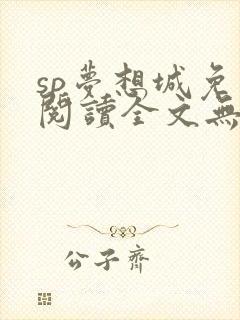 sp夢想城免
閱讀全文無
公子齊